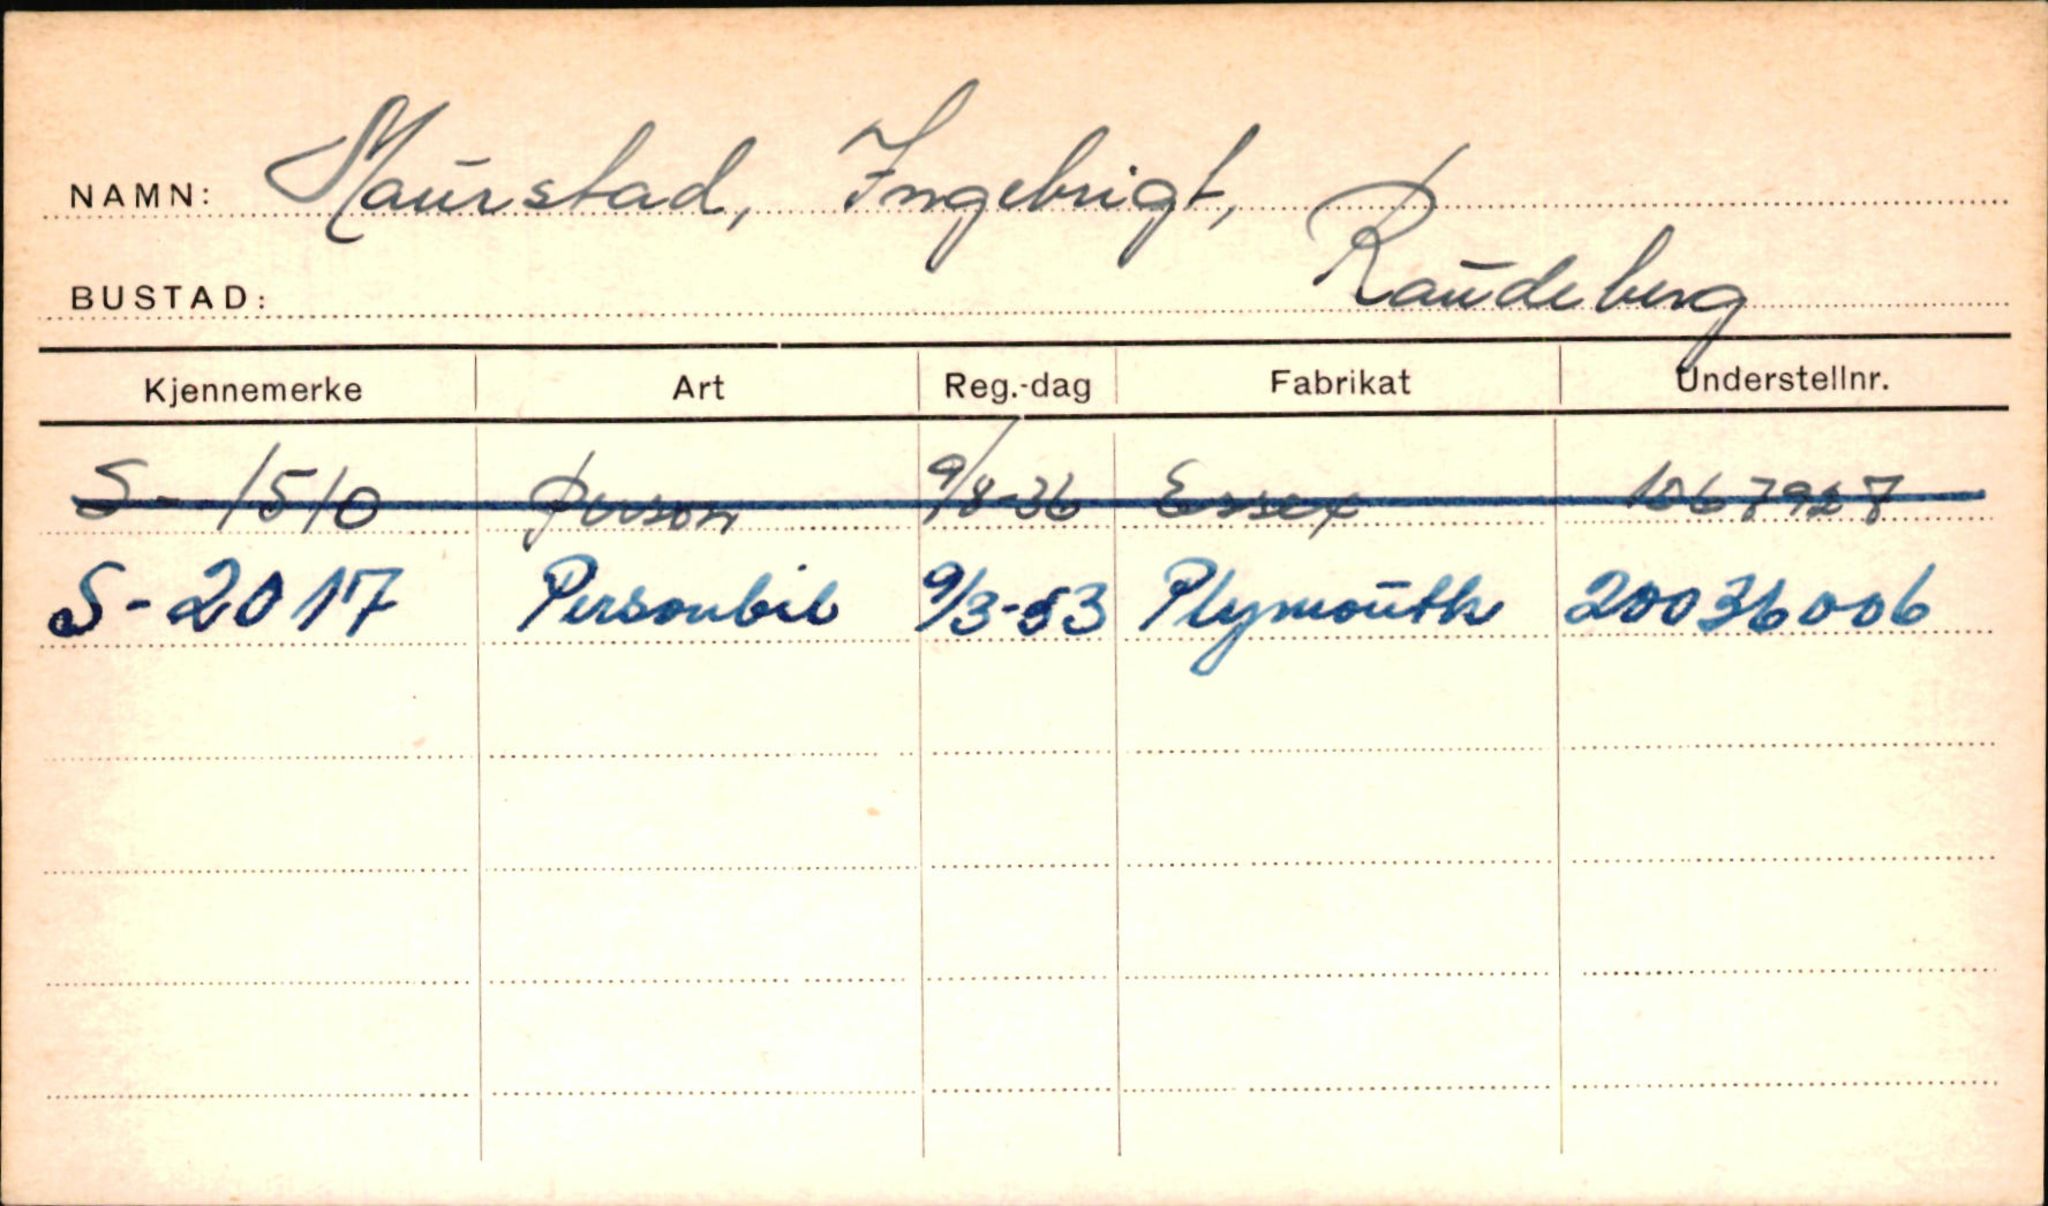 NAMN: Maurstad, Ingebrigt,
BUSTAD: Raudeberg
Kjennemerke Art Reg.-dag Fabrikat Understellnr.
S-1510 person 9/8-36 Essex 1067927
S-2017 Personbil 9/3-53 Plymouth 20036006